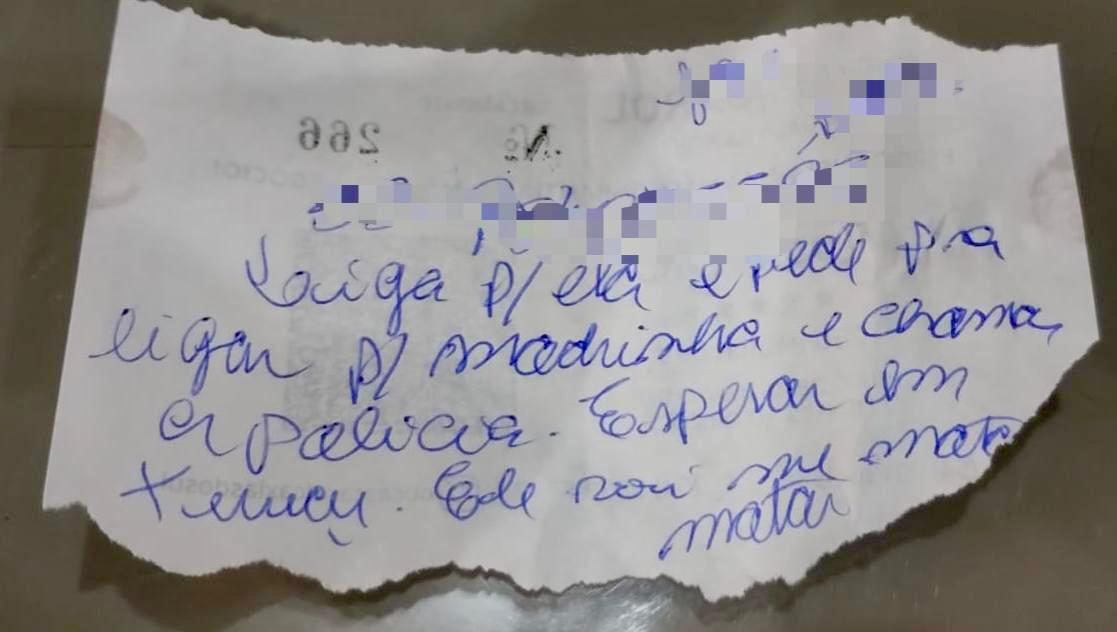 Nº 266
Liga p/ ela e pede pra
ligar p/ madrinha e chamar
a polícia. Esperar em
Ele vai me mata
matar